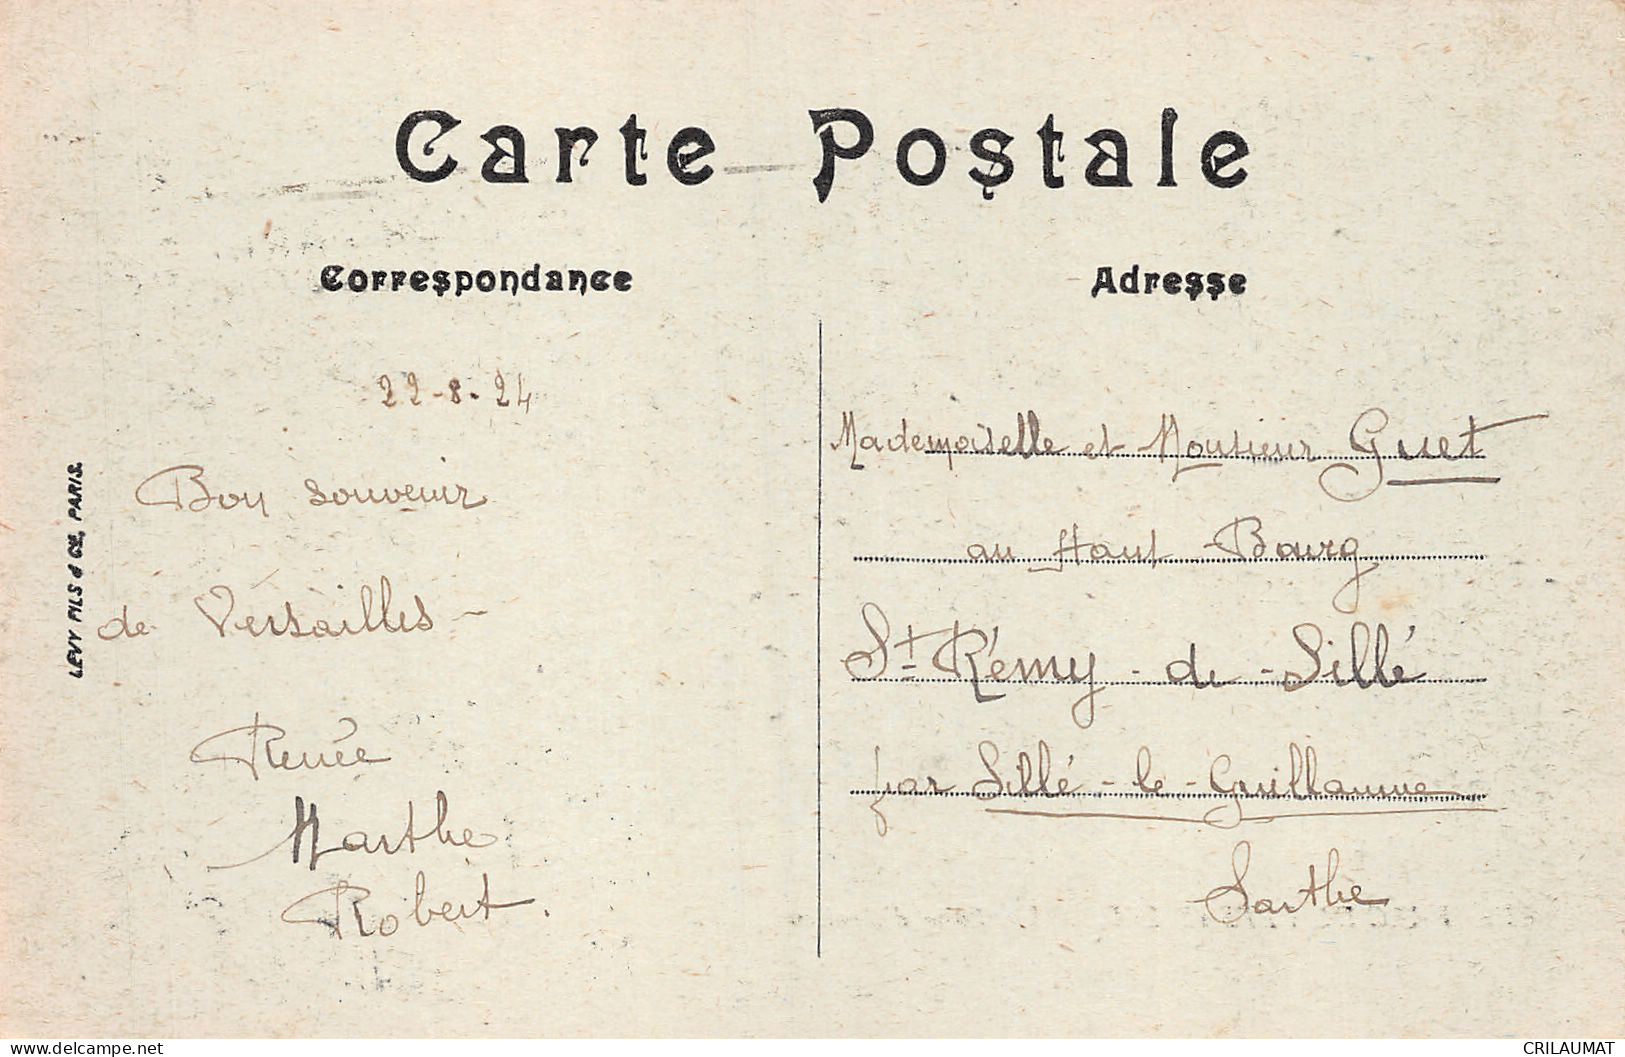 Carte Postale
Correspondance
Adresse
22-8-24
Bon souvenir
de Versailles -
Renée
Marthe
Robert.
Mademoiselle et Monsieur Guet
au Haut Bourg
St Rémy - de - Sillé
par Sillé - le - Guillaume
Sarthe
LEVY FILS & CIE, PARIS.
www.delcampe.net
CRILAUMAT